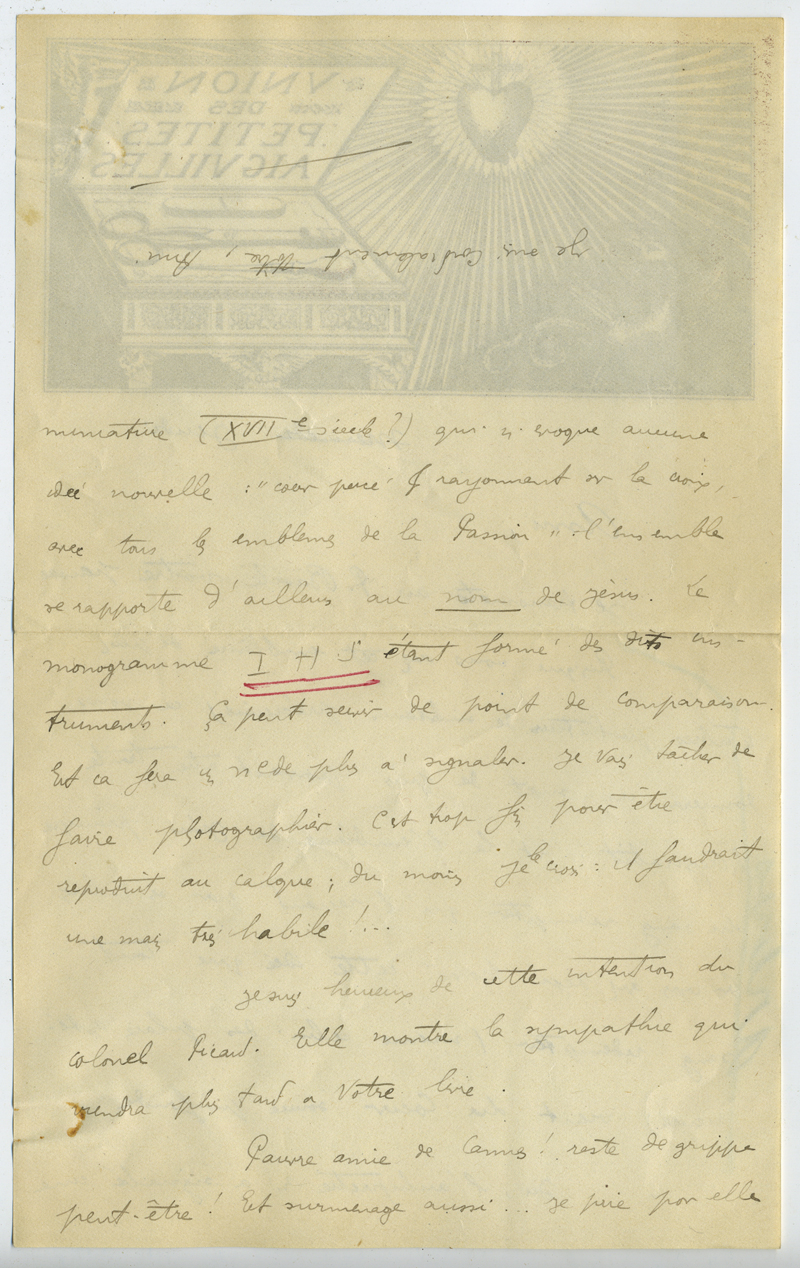 VNION
DES
PETITES
AIGVILLES
Je suis cordialement vôtre, Ami.
miniature (XVII e siècle ?) qui n'évoque aucune
idée nouvelle : "cœur percé & rayonnant sur la croix,
avec tous les emblèmes de la Passion" - l'ensemble
se rapporte d'ailleurs au nom de Jésus. Le
monogramme I H S étant formé des dits ins-
truments. Ça peut servir de point de comparaison.
Et ça fera un de plus à signaler. Je vais tâcher de
faire photographier. C'est trop fin pour être
reproduit au calque ; du moins je le crois : il faudrait
une main très habile !...
Je suis heureux de cette intention du
colonel Picard. Elle montre la sympathie qui
viendra plus tard a Votre livre.
Pauvre amie de Cannes ! reste de grippe
peut-être ! Et surmenage aussi... je prie pour elle